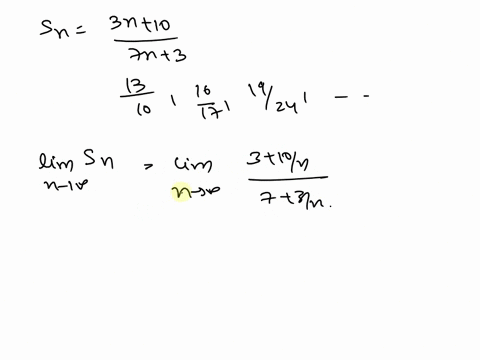 Sn = (3n+10)/(7n+3)
13/10, 16/17, 19/24, - -
lim n→∞ Sn = lim n→∞ (3+10/n)/(7+3/n).